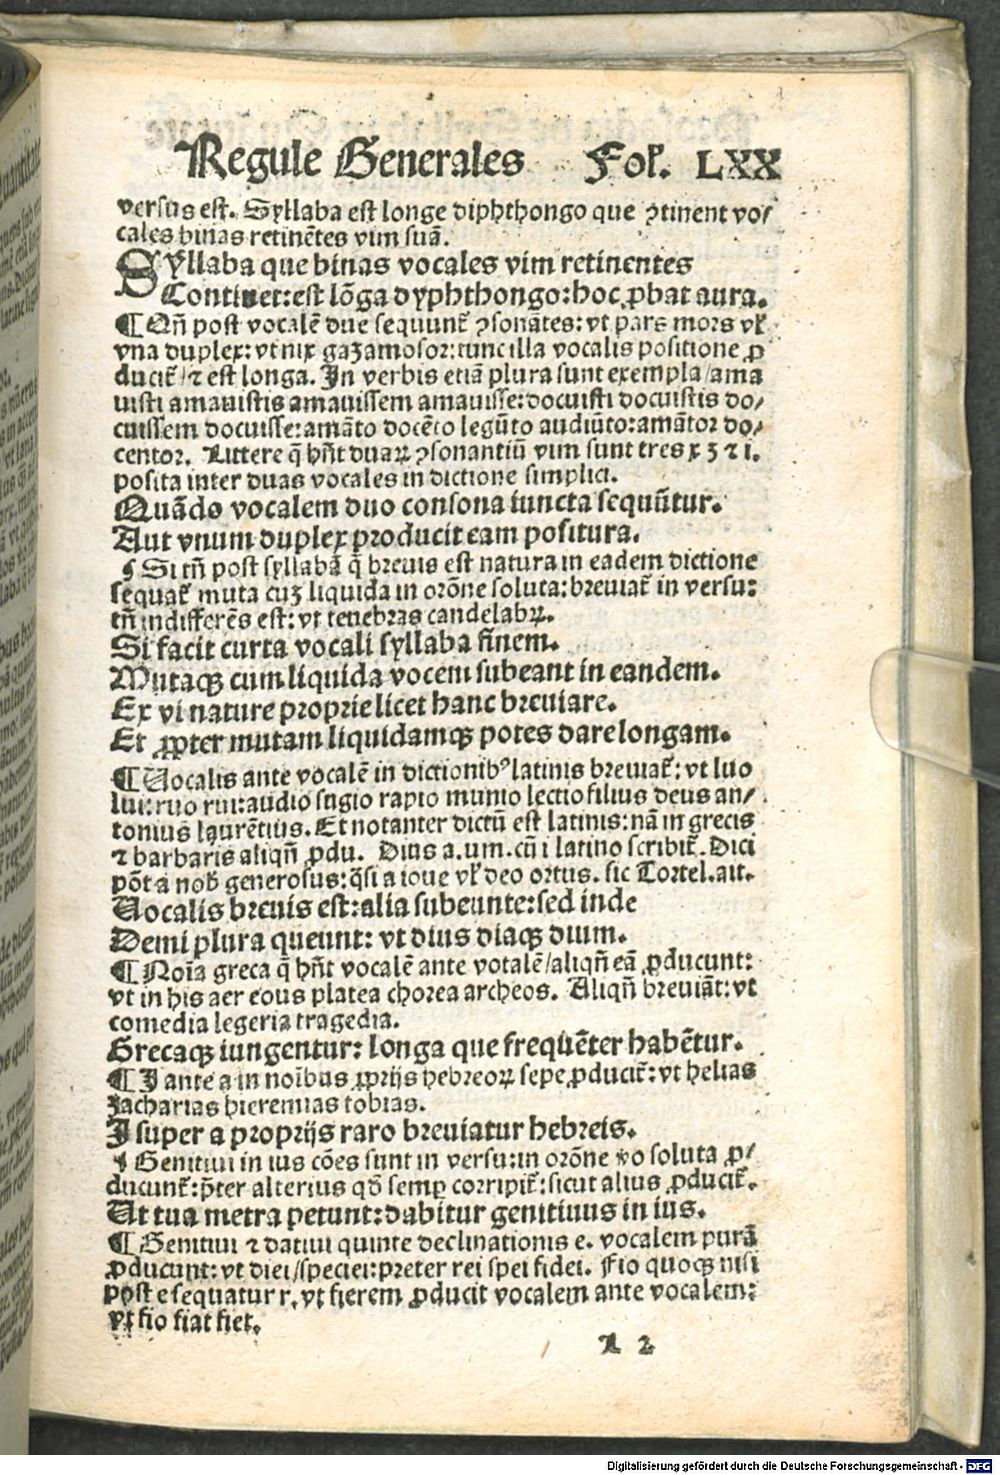 Regule Generales Fol. LXX
versus est. Syllaba est longe diphthongo que ꝯtinent vo/
cales binas retinētes vim suā.
Syllaba que binas vocales vim retinentes
Continet: est lōga dyphthongo: hoc ꝓbat aura.
¶ Qn̄ post vocalē due sequunt̄ ꝯsonātes: vt pars mors vl̓
vna duplex: vt nix gaza mosor: tunc illa vocalis positione ꝓ
ducit̄ / ⁊ est longa. In verbis etiā plura sunt exempla / ama
uisti amauistis amauissem amauisse: docuisti docuistis do/
cuissem docuisse: amāto docēto legūto audiūto: amātor do/
centor. Littere q̄ hn̄t duaꝝ ꝯsonantiū vim sunt tres x ʒ ⁊ i.
posita inter duas vocales in dictione simplici.
Quādo vocalem duo consona iuncta sequūtur.
Aut vnum duplex producit eam positura.
¶ Si tn̄ post syllabā q̄ breuis est natura in eadem dictione
sequat̄ muta cuʒ liquida in orōne soluta: breuiat̄ in versu:
tn̄ indifferēs est: vt tenebras candelabꝝ.
Si facit curta vocali syllaba finem.
Mutaqꝫ cum liquida vocem subeant in eandem.
Ex vi nature proprie licet hanc breuiare.
Et ꝓpter mutam liquidamqꝫ potes dare longam.
¶ Uocalis ante vocalē in dictionibꝰ latinis breuiat̄: vt luo
lui: ruo rui: audio fugio rapio munio lectio filius deus an/
tonius laurētius. Et notanter dictū est latinis: nā in grecis
⁊ barbaris aliqn̄ ꝓdu. Dius a. um. cū i latino scribit̄. Dici
pōt a nob̄ generosus: q̄si a ioue vl̓ deo ortus. sic Tortel. ait.
Uocalis breuis est: alia subeunte: sed inde
Demi plura queunt: vt dius diaqꝫ dium.
¶ Noīa greca q̄ hn̄t vocalē ante votalē / aliqn̄ eā ꝓducunt:
vt in his aer eous platea chorea archeos. Aliqn̄ breuiāt: vt
comedia legeria tragedia.
Grecaqꝫ iungentur: longa que frequēter habētur.
¶ I ante a in noībus ꝓprijs hebreoꝝ sepe ꝓducit̄: vt helias
zacharias hieremias tobias.
I super a proprijs raro breuiatur hebreis.
¶ Genitiui in ius cōes sunt in versu: in orōne ꝟo soluta ꝓ/
ducunt̄: p̄ter alterius qd̄ semꝑ corripit̄: sicut alius ꝓducit̄.
Ut tua metra petunt: dabitur genitiuus in ius.
¶ Genitiui ⁊ datiui quinte declinationis e. vocalem purā
ꝓducunt: vt diei / speciei: preter rei spei fidei. Fio quoqꝫ nisi
post e sequatur r. vt fierem ꝓducit vocalem ante vocalem:
vt fio fiat fiet.
L 2
Digitalisierung gefördert durch die Deutsche Forschungsgemeinschaft - DFG